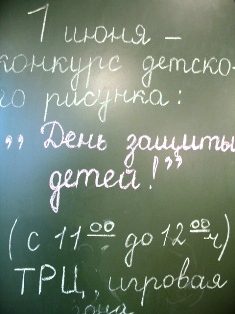 1 июня –
конкурс детско-
го рисунка:
„ День защиты
детей!”
(с 11 00 до 12 00 ч)
ТРЦ, игровая
зона